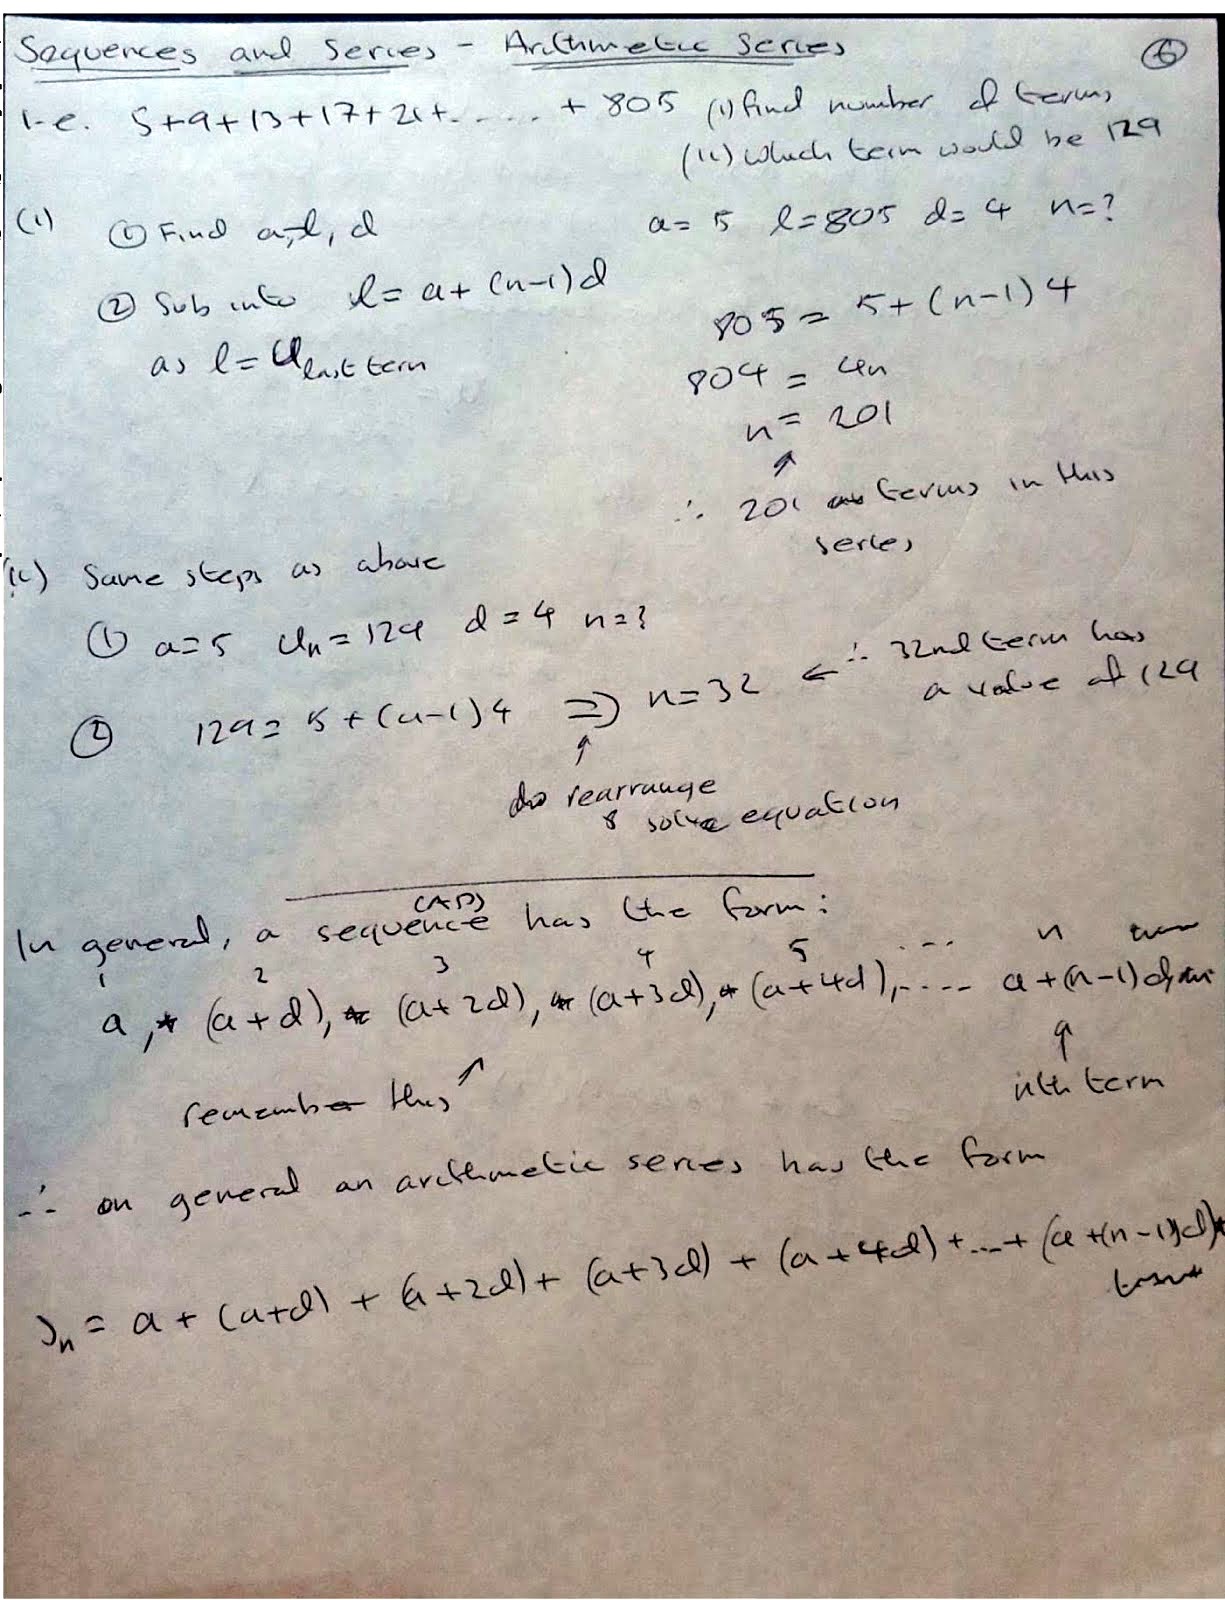 Sequences and Series - Arithmetic Series
6
i.e. 5+9+13+17+21+...... + 805 (i) find number of terms
(ii) which term would be 129
(i) ① Find a, l, d a= 5 l=805 d= 4 n=?
② Sub into l= a+ (n-1)d 805= 5+(n-1)4
as l= U last term 804 = 4n
n= 201
∴ 201 terms in this
series
(ii) Same steps as above
① a=5 Un=129 d=4 n=?
② 129= 5+(n-1)4 ⇒ n=32 ← ∴ 32nd term has
a value of 129
rearrange
& solve equation
(AP)
In general, a sequence has the form:
1 2 3 4 5 ... n
a, (a+d), (a+2d), (a+3d), (a+4d),.... a+(n-1)d
remember this nth term
∴ in general an arithmetic series has the form
Sn= a+(a+d) + (a+2d)+ (a+3d) + (a+4d)+...+ (a+(n-1)d)